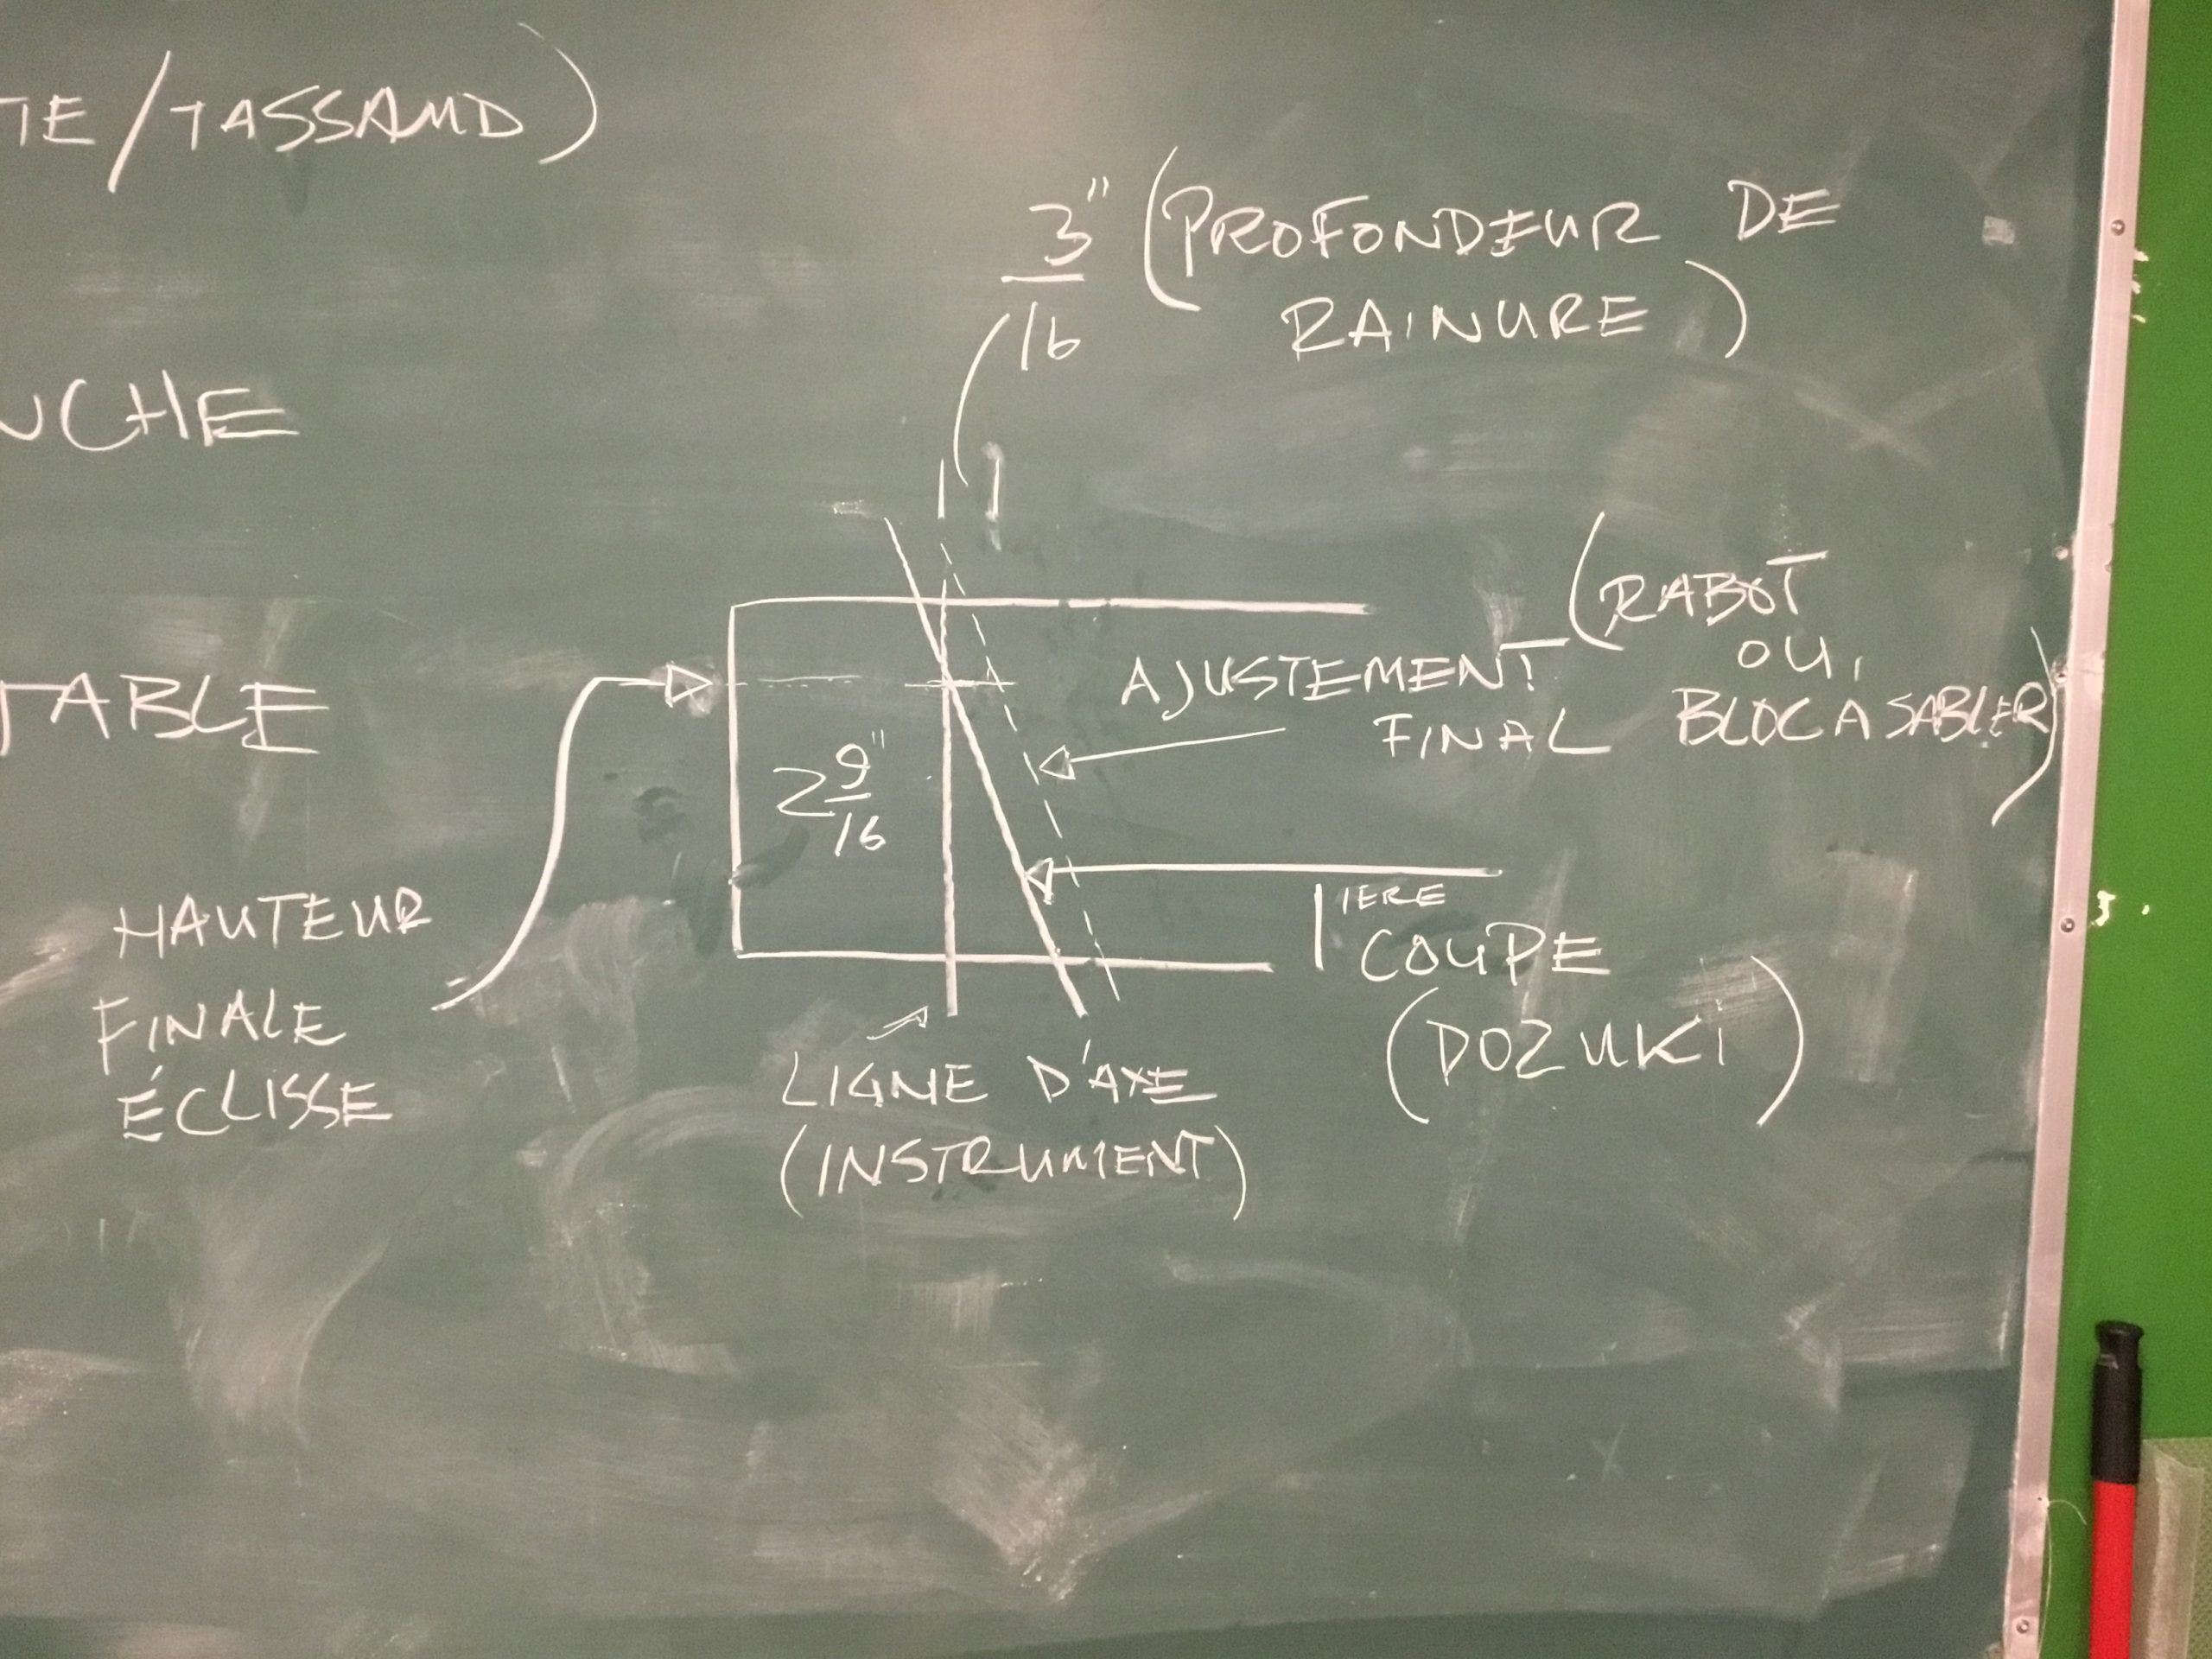 TE/TASSAUD)
3" (PROFONDEUR DE
16 RAINURE)
UCHE
(RABOT
OU
BLOC A SABLER)
AJUSTEMENT
FINAL
TABLE
2 9"
16
1IERE
COUPE
(DOZUKI)
HAUTEUR
FINALE
ÉCLISSE
LIGNE D'AXE
(INSTRUMENT)